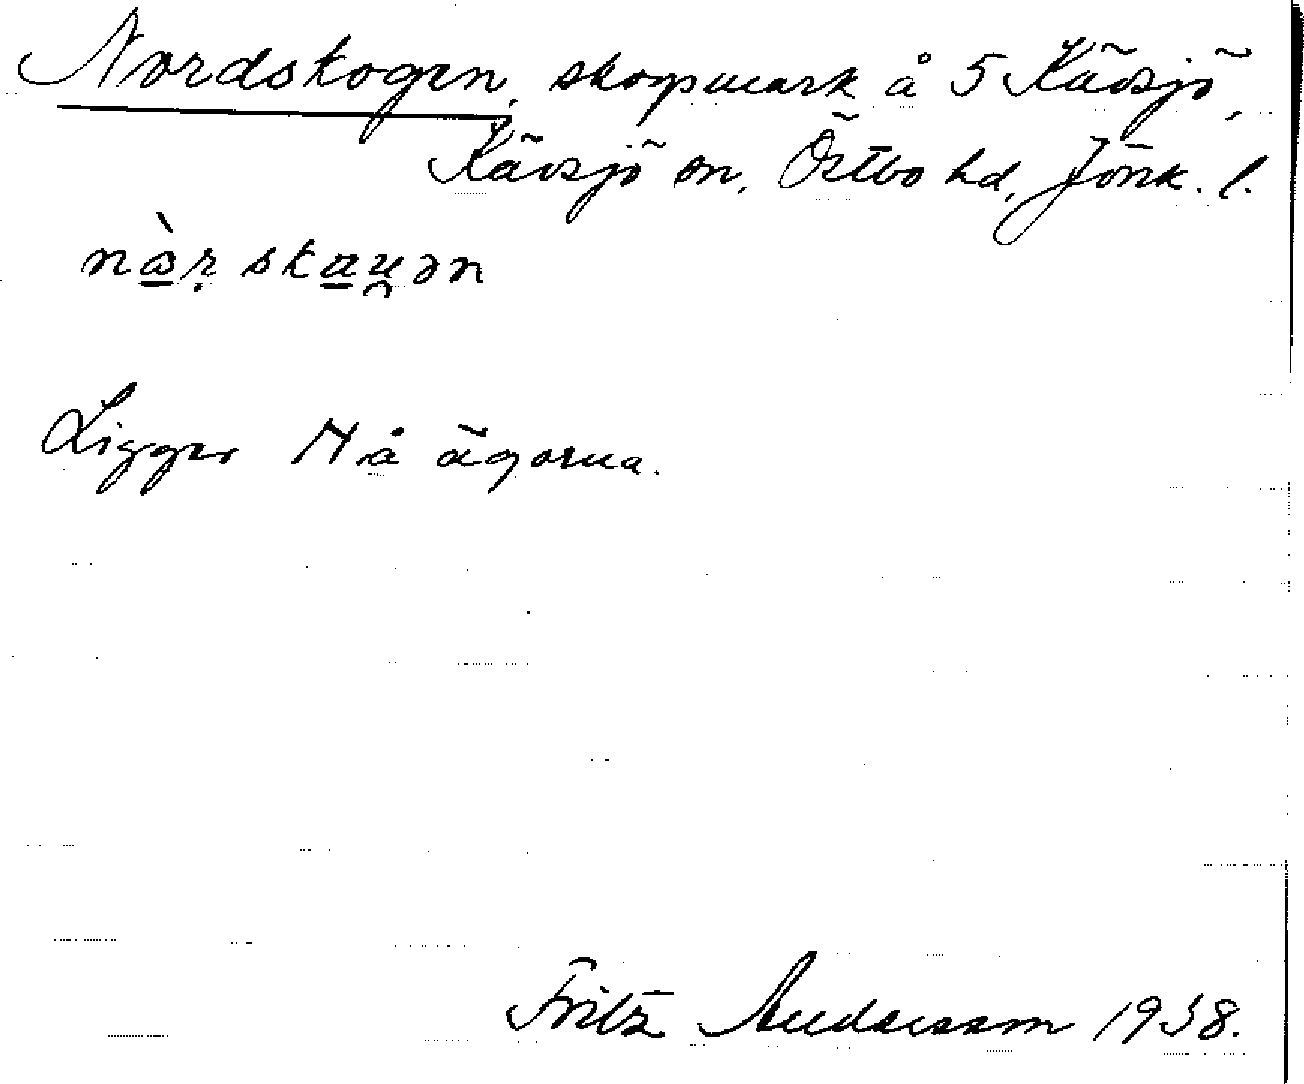 Nordskogen, skogsmark å 5 Kävsjö,
Kävsjö sn, Östbo hd, Jönk. l.
nɑ̀r̤ skau̯ən
Ligger N å ägorna.
Fritz Andersson 1938.